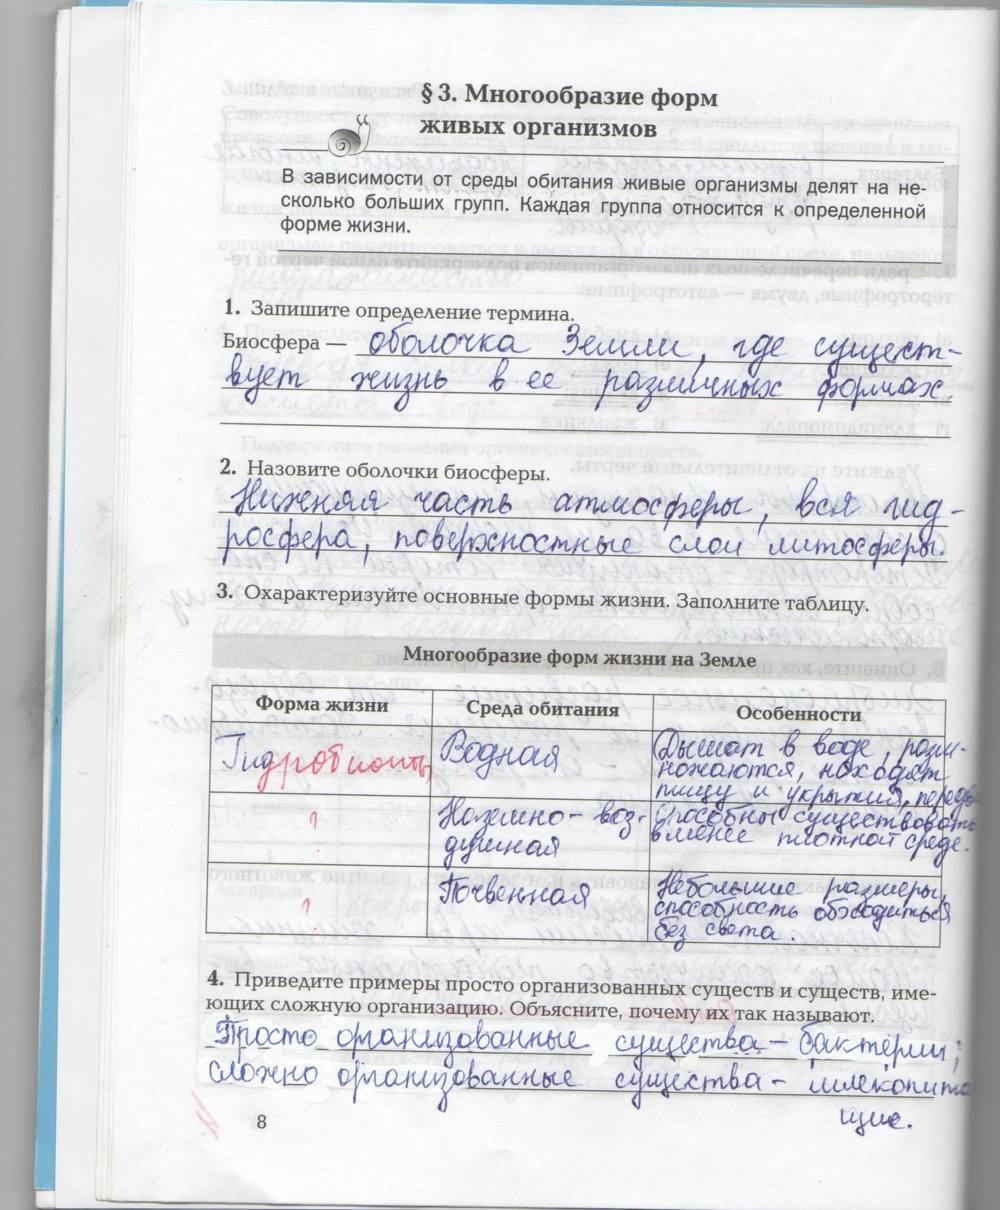 § 3. Многообразие форм
живых организмов
В зависимости от среды обитания живые организмы делят на не-
сколько больших групп. Каждая группа относится к определенной
форме жизни.
1. Запишите определение термина.
Биосфера — оболочка Земли, где сущест-
вует жизнь в ее различных формах.
2. Назовите оболочки биосферы.
Нижняя часть атмосферы, вся гид-
росфера, поверхностные слои литосферы.
3. Охарактеризуйте основные формы жизни. Заполните таблицу.
Многообразие форм жизни на Земле
Форма жизни Среда обитания Особенности
Гидробионты Водная Дышат в воде, разм-
ножаются, находят
пищу и укрытия,
? Наземно-воз-
душная
способны существовать
в менее плотной среде.
? Почвенная Небольшие размеры,
способность обходиться
без света.
4. Приведите примеры просто организованных существ и существ, име-
ющих сложную организацию. Объясните, почему их так называют.
Просто организованные существа – бактерии;
сложно организованные существа – млекопита
щие.
8